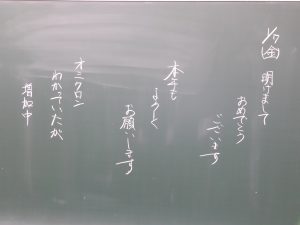 1/7(金) 明けまして
おめでとう
ございます
本年も
よろしく
お願いします
オミクロン
わかっていたが
増加中